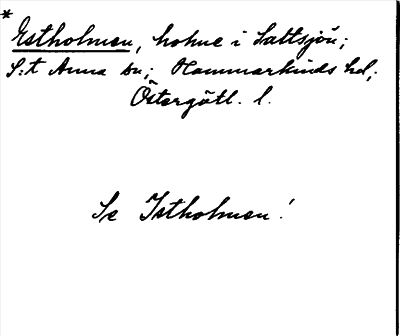 *
Estholmen, holme i Saltsjön;
S:t Anna sn; Hammarkinds hd;
Östergötl. l.
Se Istholmen!